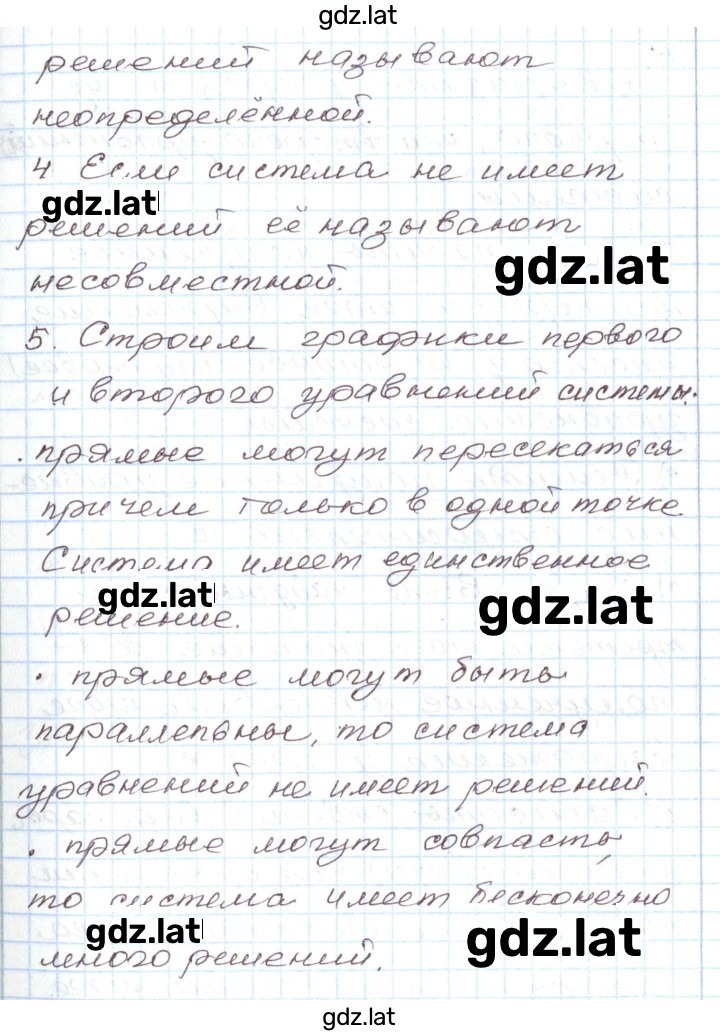 gdz.lat
решений называют
неопределённой.
4 Если система не имеет
gdz.lat
решений её называют
gdz.lat
несовместной.
5. Строим графики первого
и второго уравнений системы.
. прямые могут пересекаться
причем только в одной точке.
Система имеет единственное
gdz.lat
gdz.lat
решение.
. прямые могут быть
параллельны, то система
уравнений не имеет решений.
. прямые могут совпасть,
то система имеет бесконечно
gdz.lat
gdz.lat
много решений.
gdz.lat